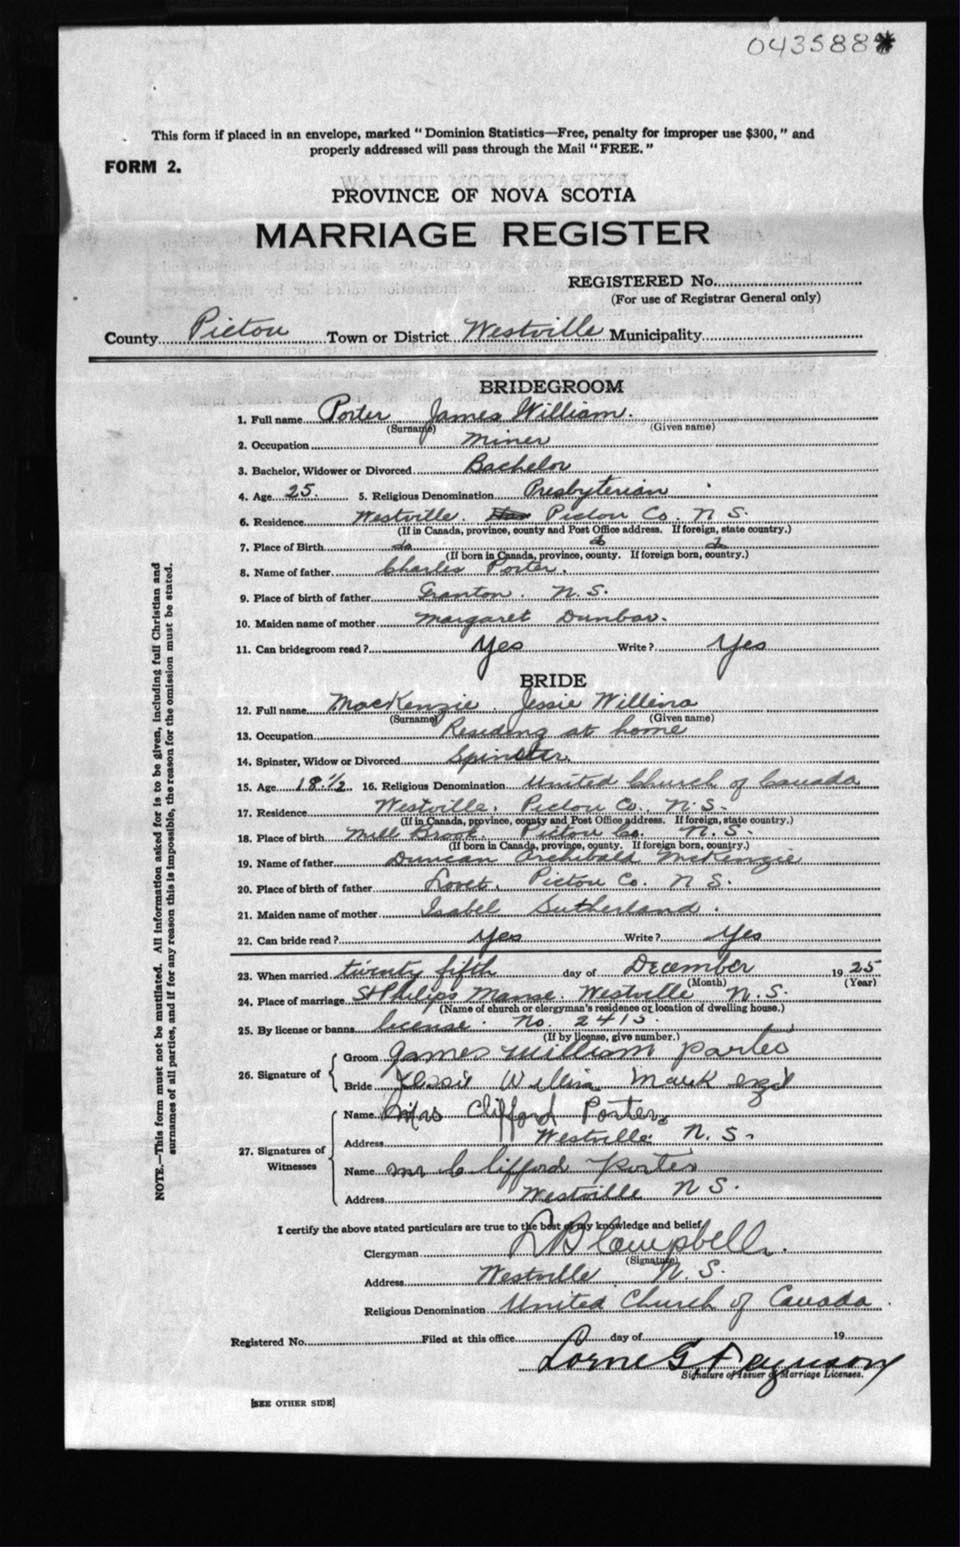 043588*
This form if placed in an envelope, marked "Dominion Statistics—Free, penalty for improper use $300," and
properly addressed will pass through the Mail "FREE."
FORM 2.
PROVINCE OF NOVA SCOTIA
MARRIAGE REGISTER
REGISTERED No.
(For use of Registrar General only)
County Pictou Town or District Westville Municipality
BRIDEGROOM
1. Full name Porter James William.
(Surname) (Given name)
2. Occupation Miner
3. Bachelor, Widower or Divorced Bachelor
4. Age 25. 5. Religious Denomination Presbyterian
6. Residence Westville. Pictou Co. N. S.
(If in Canada, province, county and Post Office address. If foreign, state country.)
7. Place of Birth do do do
(If born in Canada, province, county. If foreign born, country.)
8. Name of father Charles Porter.
9. Place of birth of father Granton. N. S.
10. Maiden name of mother Margaret Dunbar.
11. Can bridegroom read? Yes Write? Yes
BRIDE
12. Full name MacKenzie. Jessie Willena
(Surname) (Given name)
13. Occupation Residing at home
14. Spinster, Widow or Divorced Spinster.
15. Age 18 1/2 16. Religious Denomination United Church of Canada
17. Residence Westville. Pictou Co. N. S.
(If in Canada, province, county and Post Office address. If foreign, state country.)
18. Place of birth Mill Brook. Pictou Co. N. S.
(If born in Canada, province, county. If foreign born, country.)
19. Name of father Duncan Archibald McKenzie
20. Place of birth of father Pictou Co. N S.
21. Maiden name of mother Isabel Sutherland.
22. Can bride read? Yes Write? Yes
23. When married twenty fifth day of December 1925
(Month) (Year)
24. Place of marriage St Philips Manse. Westville N. S.
(Name of church or clergyman's residence or location of dwelling house.)
25. By license or banns license. No. 2415.
(If by license, give number.)
26. Signature of Groom James William Porter
Bride Jessie Willina
27. Signatures of Witnesses Name Mrs Clifford Porter
Address Westville N. S.
Name Mr Clifford Porter
Address Westville N S.
I certify the above stated particulars are true to the best of my knowledge and belief
Clergyman Campbell.
(Signature)
Address Westville N. S.
Religious Denomination United Church of Canada.
Registered No. Filed at this office day of 19
Lorne G Ferguson
Signature of Issuer of Marriage Licenses.
[SEE OTHER SIDE]
NOTE.—This form must not be mutilated. All information asked for is to be given, including full Christian and
surnames of all parties, and if for any reason this is impossible, the reason for the omission must be stated.